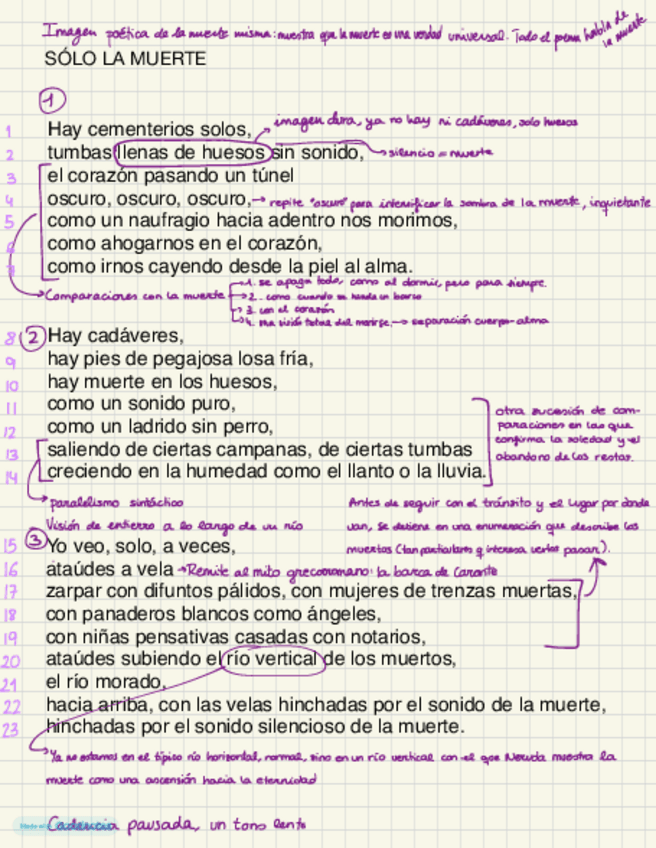 Imagen poética de la muerte misma: muestra que la muerte es una verdad universal. Todo el poema habla de la muerte
SÓLO LA MUERTE
1
1 Hay cementerios solos, imagen dura, ya no hay ni cadáveres, solo huesos
2 tumbas llenas de huesos sin sonido, silencio = muerte
3 el corazón pasando un túnel
4 oscuro, oscuro, oscuro, repite "oscuro" para intensificar la sombra de la muerte, inquietante
5 como un naufragio hacia adentro nos morimos,
6 como ahogarnos en el corazón,
7 como irnos cayendo desde la piel al alma.
Comparaciones con la muerte
1. se apaga todo, como al dormir, pero para siempre.
2. como cuando se hunde un barco
3. con el corazón
4. una visión total del morirse. → separación cuerpo-alma
8 2 Hay cadáveres,
9 hay pies de pegajosa losa fría,
10 hay muerte en los huesos,
11 como un sonido puro,
12 como un ladrido sin perro,
13 saliendo de ciertas campanas, de ciertas tumbas
14 creciendo en la humedad como el llanto o la lluvia.
otra sucesión de com-
paraciones en las que
confirma la soledad y el
abandono de los restos.
paralelismo sintáctico
Visión de entierro a lo largo de un río
Antes de seguir con el tránsito y el lugar por donde
van, se detiene en una enumeración que describe los
muertos (tan particulares q interesa verlos pasar).
15 3 Yo veo, solo, a veces,
16 ataúdes a vela → Remite al mito grecorromano: la barca de Caronte
17 zarpar con difuntos pálidos, con mujeres de trenzas muertas,
18 con panaderos blancos como ángeles,
19 con niñas pensativas casadas con notarios,
20 ataúdes subiendo el río vertical de los muertos,
21 el río morado,
22 hacia arriba, con las velas hinchadas por el sonido de la muerte,
23 hinchadas por el sonido silencioso de la muerte.
Ya no estamos en el típico río horizontal, normal, sino en un río vertical con el que Neruda muestra la
muerte como una ascensión hacia la eternidad
Cadencia pausada, un tono lento